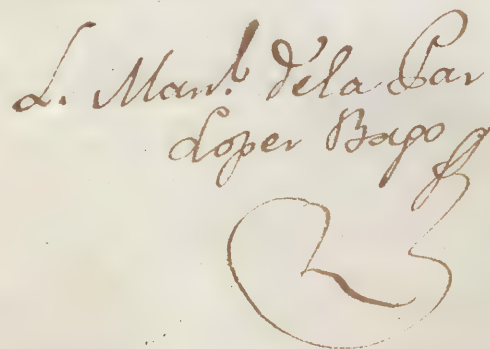 L. Man.l dela Paz
Lopez Bago